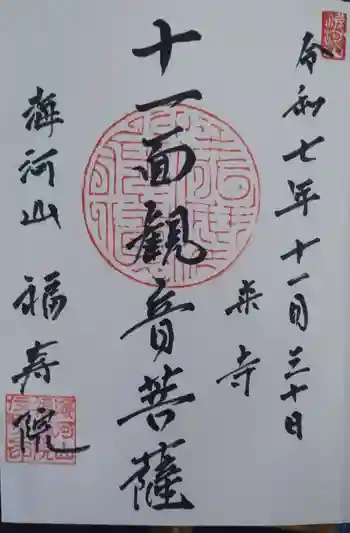 令和七年十一月三十日
来寺
十一面観音菩薩
河山 福寿院